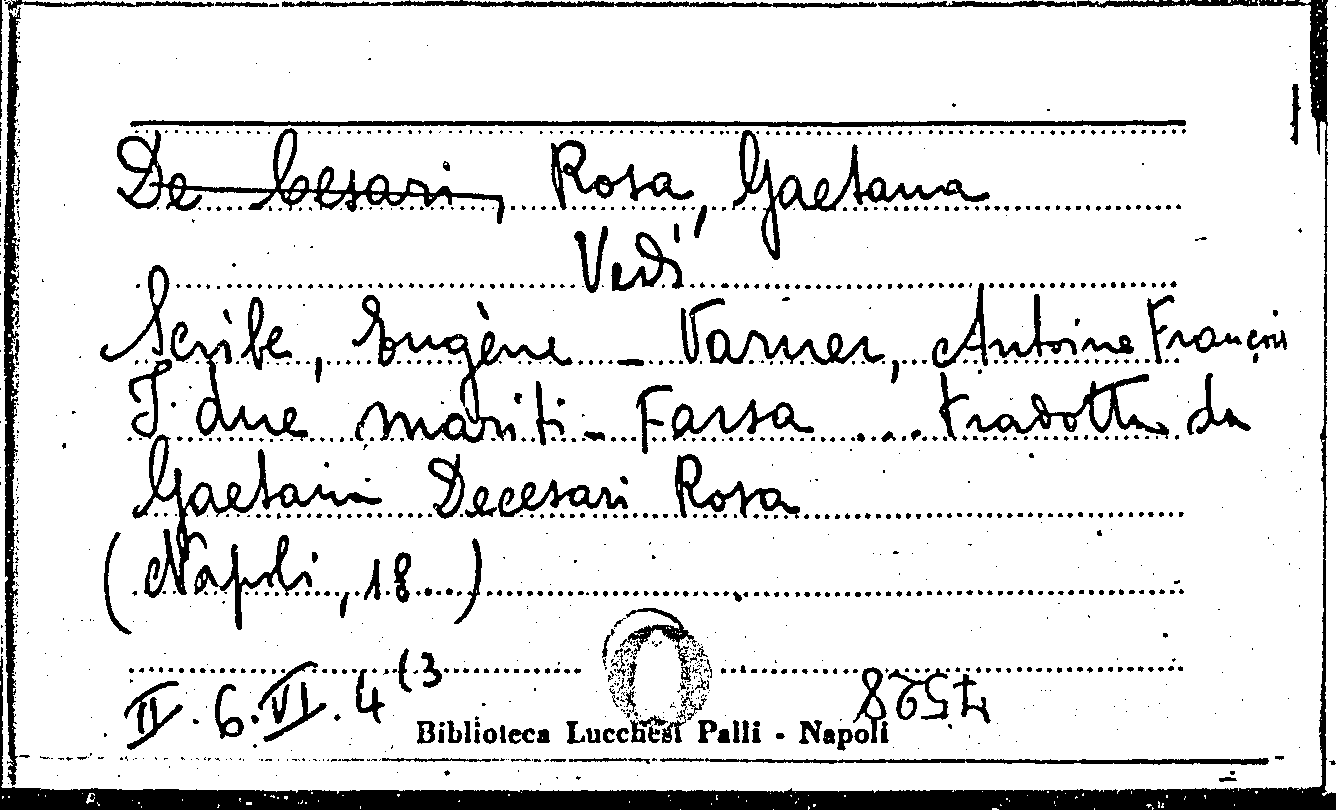 De Cesari, Rosa, Gaetana
Vedi
Scribe, Eugène - Varner, Antoine François
I due mariti - Farsa ... tradotta da
Gaetana Decesari Rosa
(Napoli, 18..)
II. 6. VI. 4 (3
Biblioteca Lucchesi Palli - Napoli